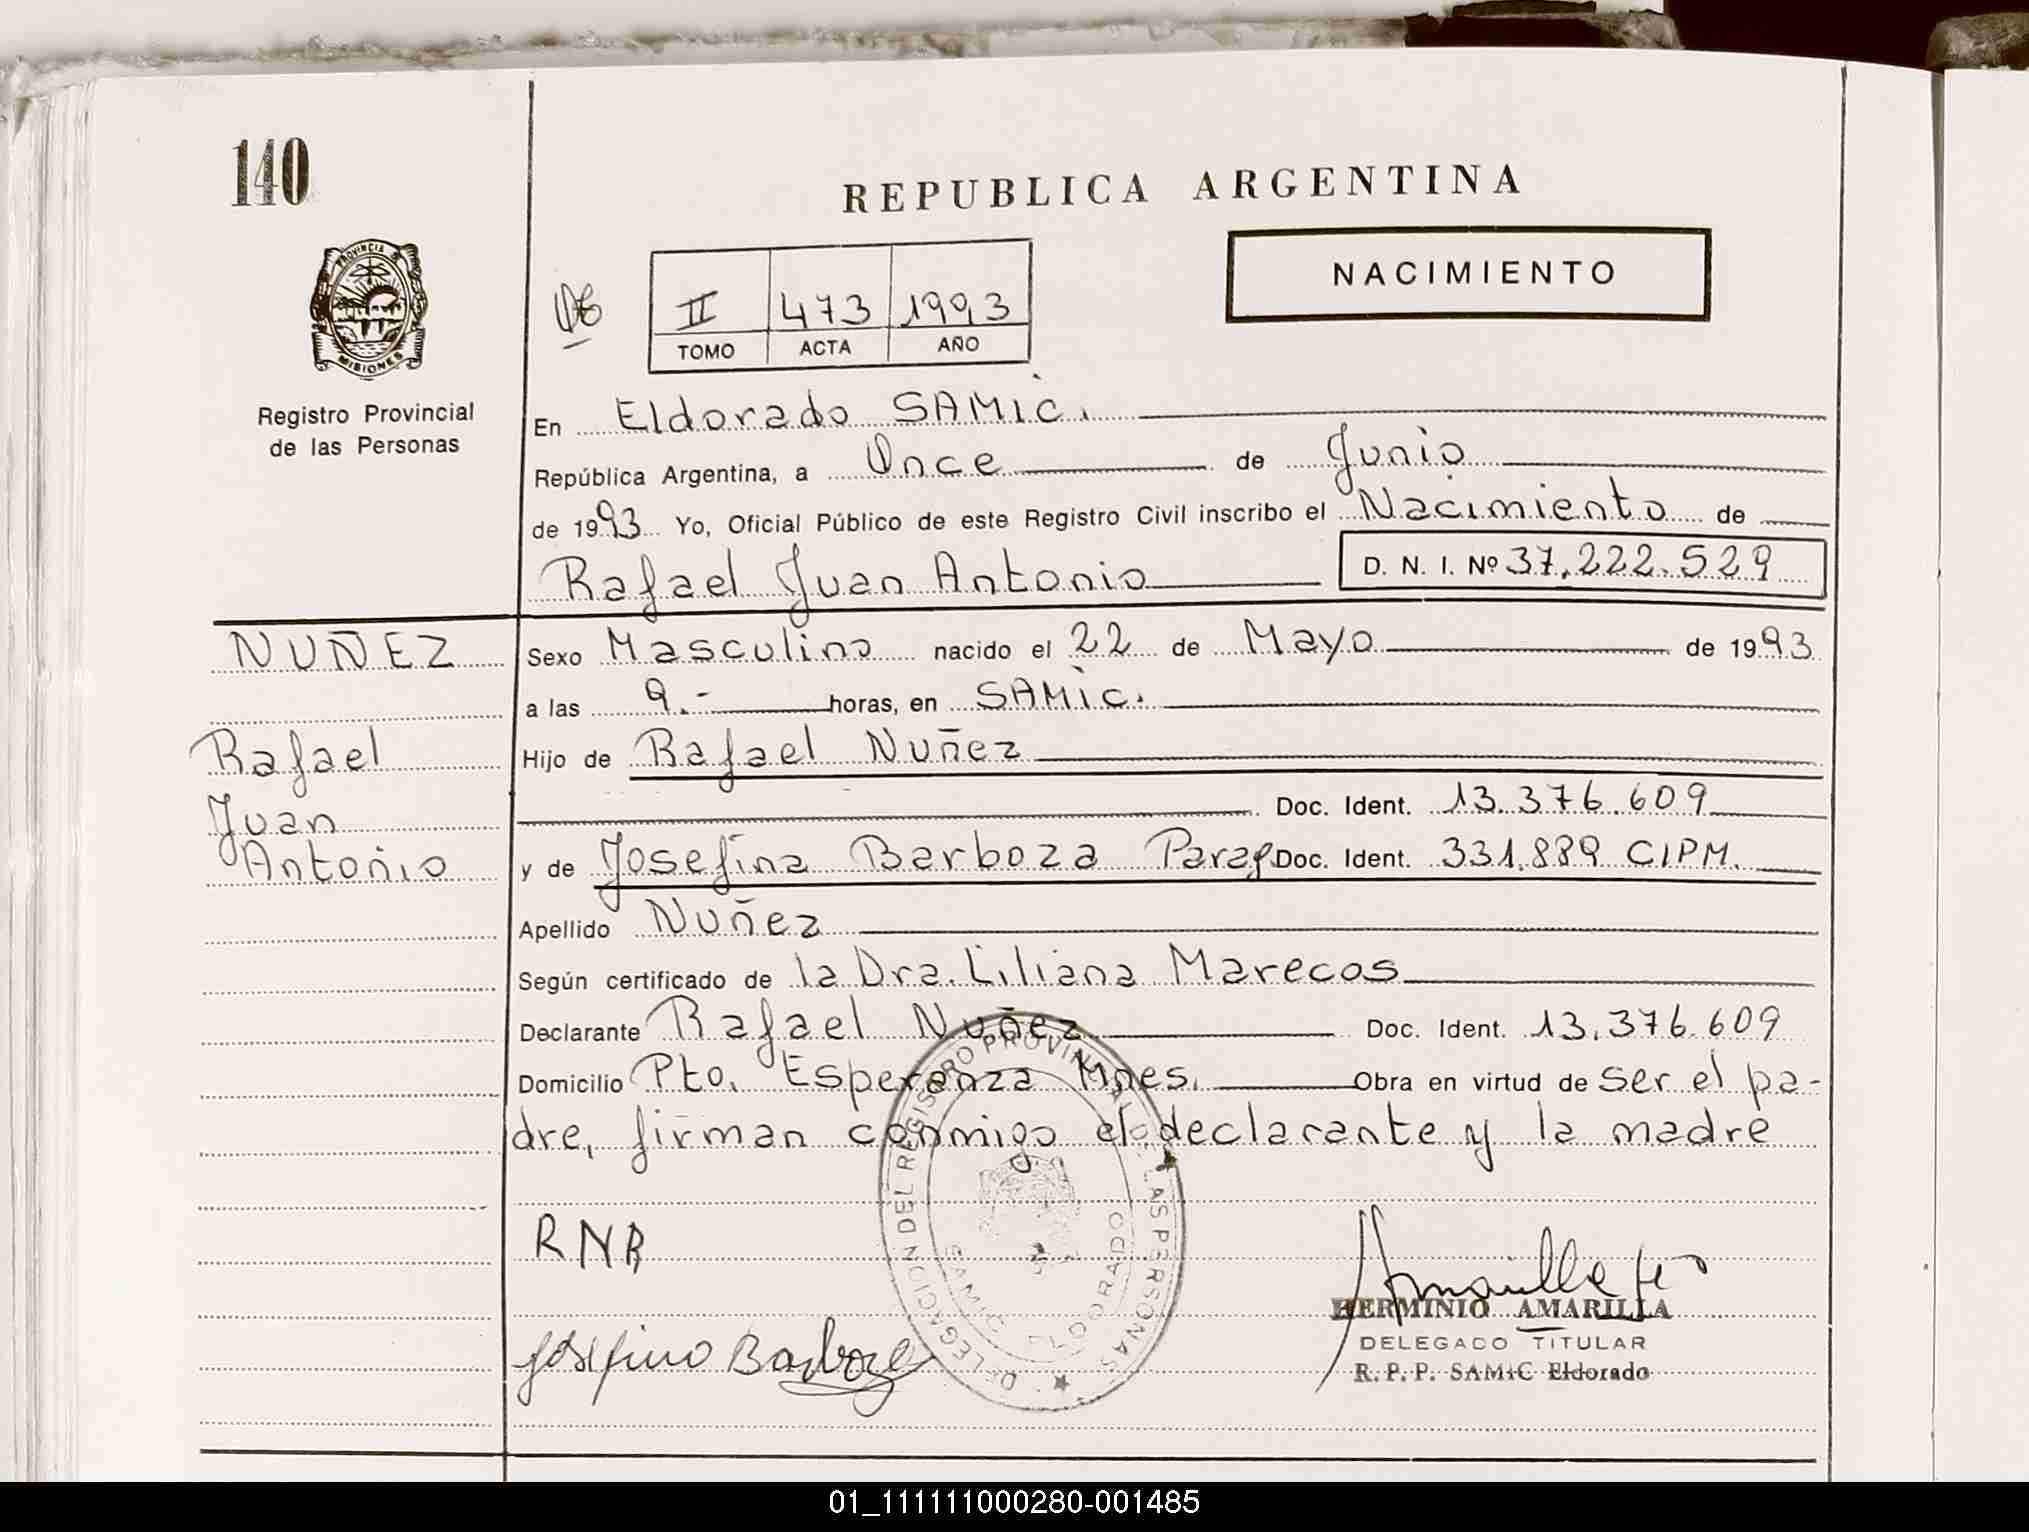 140
REPUBLICA ARGENTINA
PROVINCIA
MISIONES
NACIMIENTO
II 473 1993
TOMO ACTA AÑO
Registro Provincial
de las Personas
En Eldorado SAMIC.
República Argentina, a Once de Junio
de 1993 Yo, Oficial Público de este Registro Civil inscribo el Nacimiento de
Rafael Juan Antonio D. N. I. Nº 37.222.529
NUÑEZ
Rafael
Juan
Antonio
Sexo Masculino nacido el 22 de Mayo de 1993
a las 9.- horas, en SAMIC.
Hijo de Rafael Nuñez
Doc. Ident. 13.376.609
y de Josefina Barboza Parag Doc. Ident. 331.889 CIPM.
Apellido Nuñez
Según certificado de la Dra. Liliana Marecos
Declarante Rafael Nuñez Doc. Ident. 13.376.609
Domicilio Pto. Esperanza Mnes. Obra en virtud de ser el pa-
dre, firman conmigo el declarante y la madre
DELEGACION DEL REGISTRO PROVINCIAL DE LAS PERSONAS
SAMIC ELDORADO
RNR
Josefina Barboza
HERMINIO AMARILLA
DELEGADO TITULAR
R. P. P. SAMIC Eldorado
01_111111000280-001485